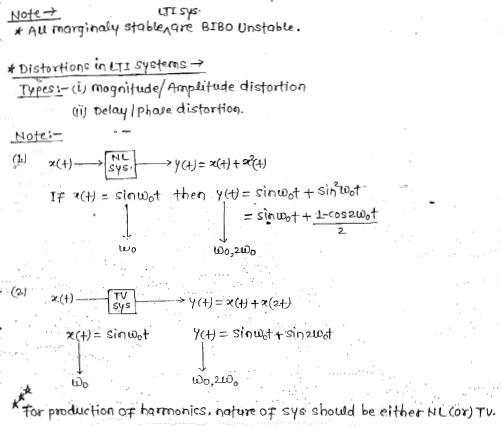 Note →
LTI sys.
* All marginaly stable ∧ are BIBO Unstable.
* Distortions in LTI systems →
Types:- (i) Magnitude/Amplitude distortion
(ii) Delay/phase distortion.
Note:-
(1) x(t) → NL sys. → y(t) = x(t) + x²(t)
If x(t) = sinω₀t then y(t) = sinω₀t + sin²ω₀t
= sinω₀t + (1-cos2ω₀t)/2
ω₀ ω₀, 2ω₀
(2) x(t) → TV sys → y(t) = x(t) + x(2t)
x(t) = sinω₀t y(t) = sinω₀t + sin2ω₀t
ω₀ ω₀, 2ω₀
* For production of harmonics, nature of sys should be either NL (or) TV.